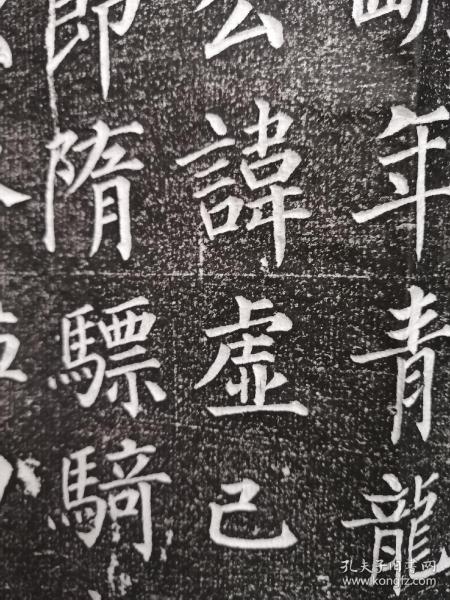 年青龍
公諱虛己
即隋驃騎
孔夫子旧书网
www.kongfz.com